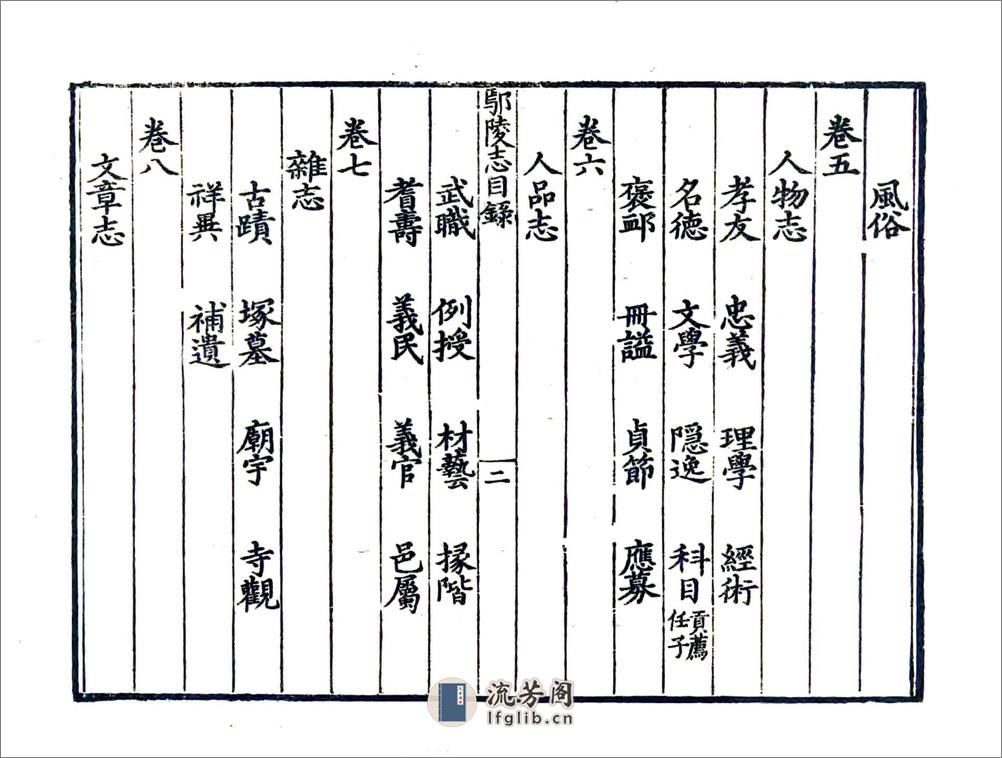 風俗
卷五
人物志
孝友 忠義 理學 經術
名德 文學 隠逸 科目 貢薦 任子
褒邮 冊謚 貞節 應募
卷六
人品志
鄢陵志目錄 二
武職 例授 材藝 掾階
耆壽 義民 義官 邑屬
卷七
雜志
古蹟 塚墓 廟宇 寺觀
祥異 補遺
卷八
文章志
流芳阁
lfglib.cn